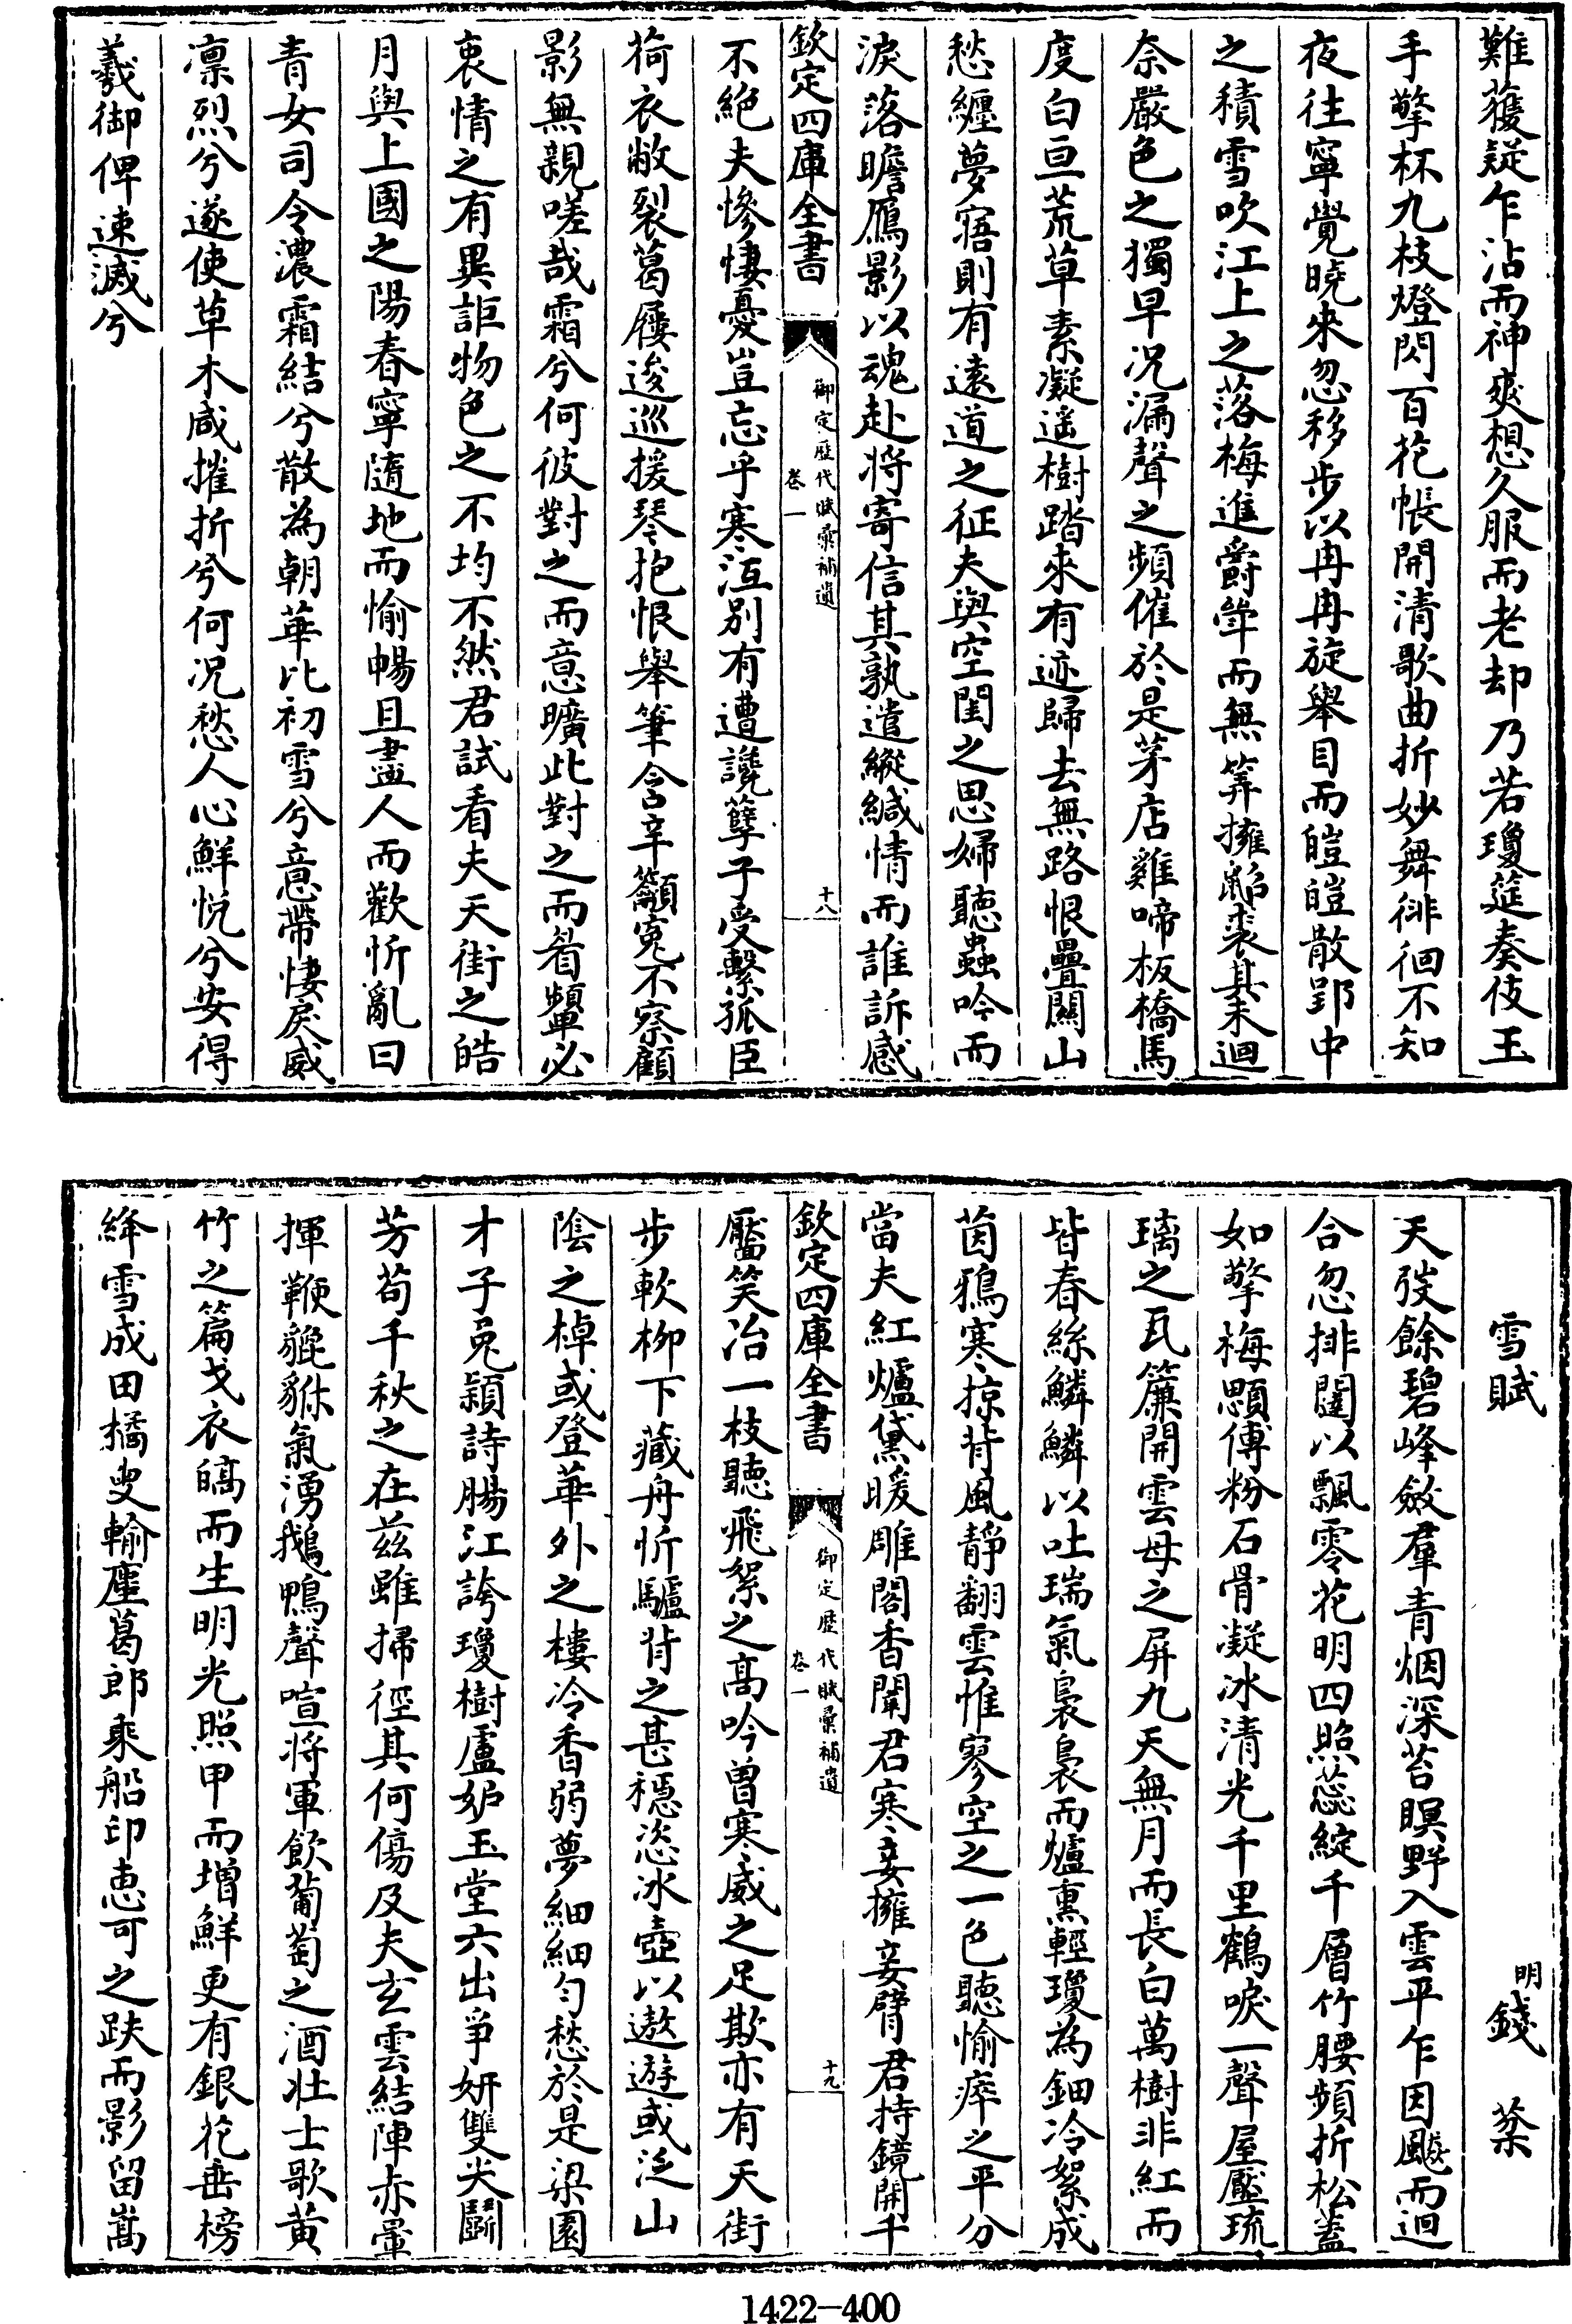 難䕶疑乍沾而神爽想久服而老却乃若瓊筵奏伎玉
手擎杯九枝燈閃百花帳開清歌曲折妙舞徘徊不知
夜往寧覺曉来忽移步以冉冉旋舉目而皚皚散郢中
之積雪吹江上之落梅進爵斝而無筭擁貂裘其未迴
奈嚴色之獨早况漏聲之頻催於是茅店雞啼板橋馬
度白亘荒草素凝遥樹踏來有迹歸去無路恨疊關山
愁纏夢寤則有遠道之征夫與空閨之思婦聽蟲吟而
淚落瞻鴈影以魂赴將寄信其孰遣縱緘情而誰訴感
欽定四庫全書
御定歴代賦彚補遺
卷一
十八
不絶夫慘悽憂豈忘乎寒沍别有遭讒孽子受繫孤臣
荷衣敝裂葛屨逡巡援琴抱恨舉筆含辛籲寃不察顧
影無親嗟哉霜兮何彼對之而意曠此對之而眉顰必
衷情之有異詎物色之不均不然君試看夫天街之皓
月與上國之陽春寧隨地而愉暢且盡人而歡忻亂曰
青女司令濃霜結兮散為朝華比初雪兮意帶悽戾威
凛烈兮遂使草木咸摧折兮何况愁人心鮮悦兮安得
羲御俾速滅兮
雪賦
明錢棻
天弢餘碧峰斂羣青烟深苔瞑野入雲平乍因颷而迴
合忽排闥以飄零花明四照蕊綻千層竹腰頻折松蓋
如擎梅顋傅粉石骨凝冰清光千里鶴唳一聲屋壓琉
璃之瓦簾開雲母之屏九天無月而長白萬樹非紅而
皆春絲鱗鱗以吐瑞氣裊裊而爐熏輕瓊為鈿冷絮成
茵鴉寒掠背風静翻雲惟寥空之一色聽愉瘁之平分
當夫紅爐黛暖雕閣香聞君寒妾擁妾臂君持鏡開千
欽定四庫全書
御定歴代賦彚補遺
卷一
十九
靨笑冶一枝聽飛絮之高吟曾寒威之足欺亦有天街
步軟柳下藏舟忻驢背之甚穩恣冰壺以遨遊或泛山
陰之棹或登華外之樓冷香弱夢細細勻愁於是梁園
才子兎潁詩腸江誇瓊樹盧妒玉堂六出爭妍雙尖鬭
芳苟千秋之在兹雖掃徑其何傷及夫玄雲結陣赤羣
揮鞭貔貅氣湧鵝鴨聲喧將軍飲葡萄之酒壯士歌黄
竹之篇戈衣皜而生明光照甲而增鮮更有銀花垂榜
絳雪成田橘叟輸塵葛郎乘船印恵可之趺而影留嵩
1422—400